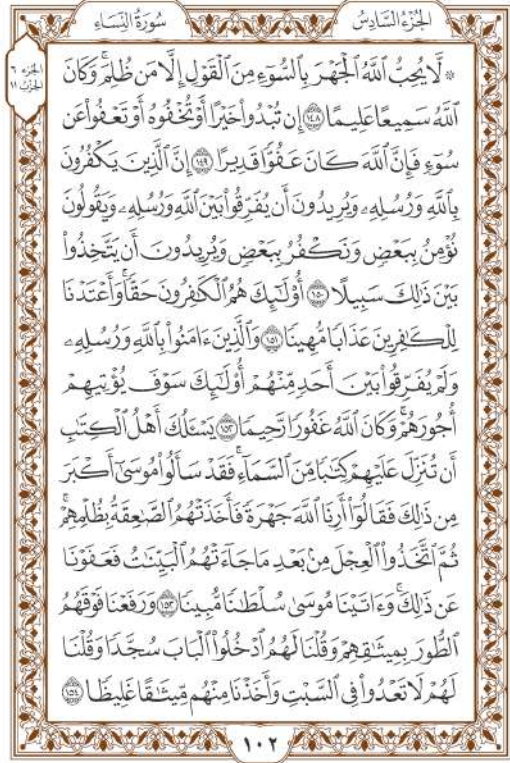 الجزء السادس
سورة النساء
الجزء ٦
الحزب ١١
۞ لَّا يُحِبُّ ٱللَّهُ ٱلْجَهْرَ بِٱلسُّوٓءِ مِنَ ٱلْقَوْلِ إِلَّا مَن ظُلِمَۚ وَكَانَ
ٱللَّهُ سَمِيعًا عَلِيمًا ١٤٨ إِن تُبْدُوا۟ خَيْرًا أَوْ تُخْفُوهُ أَوْ تَعْفُوا۟ عَن
سُوٓءٍ فَإِنَّ ٱللَّهَ كَانَ عَفُوًّا قَدِيرًا ١٤٩ إِنَّ ٱلَّذِينَ يَكْفُرُونَ
بِٱللَّهِ وَرُسُلِهِۦ وَيُرِيدُونَ أَن يُفَرِّقُوا۟ بَيْنَ ٱللَّهِ وَرُسُلِهِۦ وَيَقُولُونَ
نُؤْمِنُ بِبَعْضٍ وَنَكْفُرُ بِبَعْضٍ وَيُرِيدُونَ أَن يَتَّخِذُوا۟
بَيْنَ ذَٰلِكَ سَبِيلًا ١٥٠ أُو۟لَٰٓئِكَ هُمُ ٱلْكَٰفِرُونَ حَقًّاۚ وَأَعْتَدْنَا
لِلْكَٰفِرِينَ عَذَابًا مُّهِينًا ١٥١ وَٱلَّذِينَ ءَامَنُوا۟ بِٱللَّهِ وَرُسُلِهِۦ
وَلَمْ يُفَرِّقُوا۟ بَيْنَ أَحَدٍ مِّنْهُمْ أُو۟لَٰٓئِكَ سَوْفَ يُؤْتِيهِمْ
أُجُورَهُمْۗ وَكَانَ ٱللَّهُ غَفُورًا رَّحِيمًا ١٥٢ يَسْـَٔلُكَ أَهْلُ ٱلْكِتَٰبِ
أَن تُنَزِّلَ عَلَيْهِمْ كِتَٰبًا مِّنَ ٱلسَّمَآءِۚ فَقَدْ سَأَلُوا۟ مُوسَىٰٓ أَكْبَرَ
مِن ذَٰلِكَ فَقَالُوٓا۟ أَرِنَا ٱللَّهَ جَهْرَةً فَأَخَذَتْهُمُ ٱلصَّٰعِقَةُ بِظُلْمِهِمْۚ
ثُمَّ ٱتَّخَذُوا۟ ٱلْعِجْلَ مِنۢ بَعْدِ مَا جَآءَتْهُمُ ٱلْبَيِّنَٰتُ فَعَفَوْنَا
عَن ذَٰلِكَۚ وَءَاتَيْنَا مُوسَىٰ سُلْطَٰنًا مُّبِينًا ١٥٣ وَرَفَعْنَا فَوْقَهُمُ
ٱلطُّورَ بِمِيثَٰقِهِمْ وَقُلْنَا لَهُمُ ٱدْخُلُوا۟ ٱلْبَابَ سُجَّدًا وَقُلْنَا
لَهُمْ لَا تَعْدُوا۟ فِى ٱلسَّبْتِ وَأَخَذْنَا مِنْهُم مِّيثَٰقًا غَلِيظًا ١٥٤
١٠٢